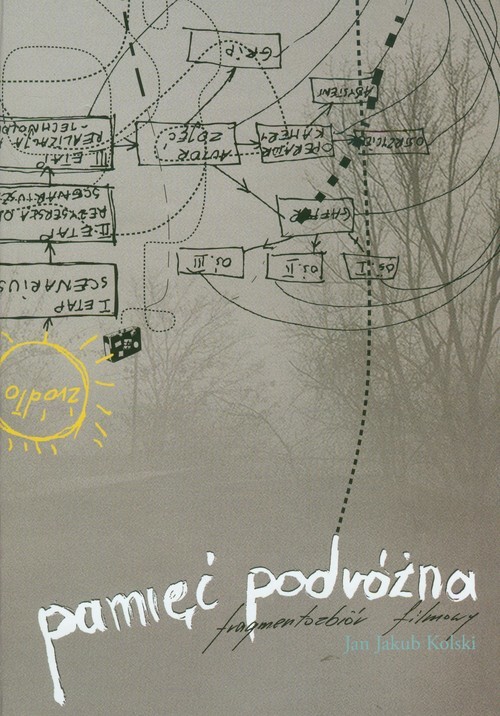 GRIP
ASYSTENT
III ETAP
REALIZACJA
AUTOR
ZDJĘĆ
OPERATOR
KAMERY
OSTRZYCIEL
II ETAP
GAFFER
OŚ. III
OŚ. II
OŚ. I
I ETAP
SCENARIUS
źródło
pamięć podróżna
fragmentozbiór filmowy
Jan Jakub Kolski